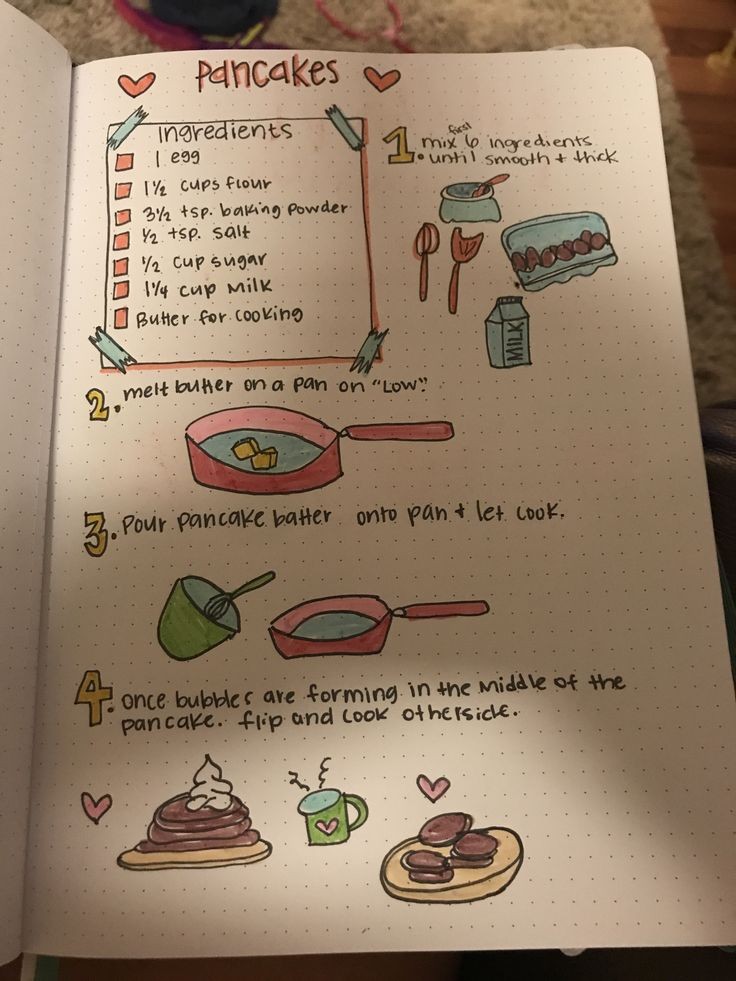 Pancakes
Ingredients
1 egg
1 1/2 cups flour
3 1/2 tsp. baking powder
1/2 tsp. salt
1/2 cup sugar
1 1/4 cup milk
Butter for cooking
1. mix first 6 ingredients
until smooth + thick
MILK
2. melt butter on a pan on "Low".
3. Pour pancake batter onto pan + let cook.
4. once bubbles are forming in the middle of the
pancake. flip and cook otherside.